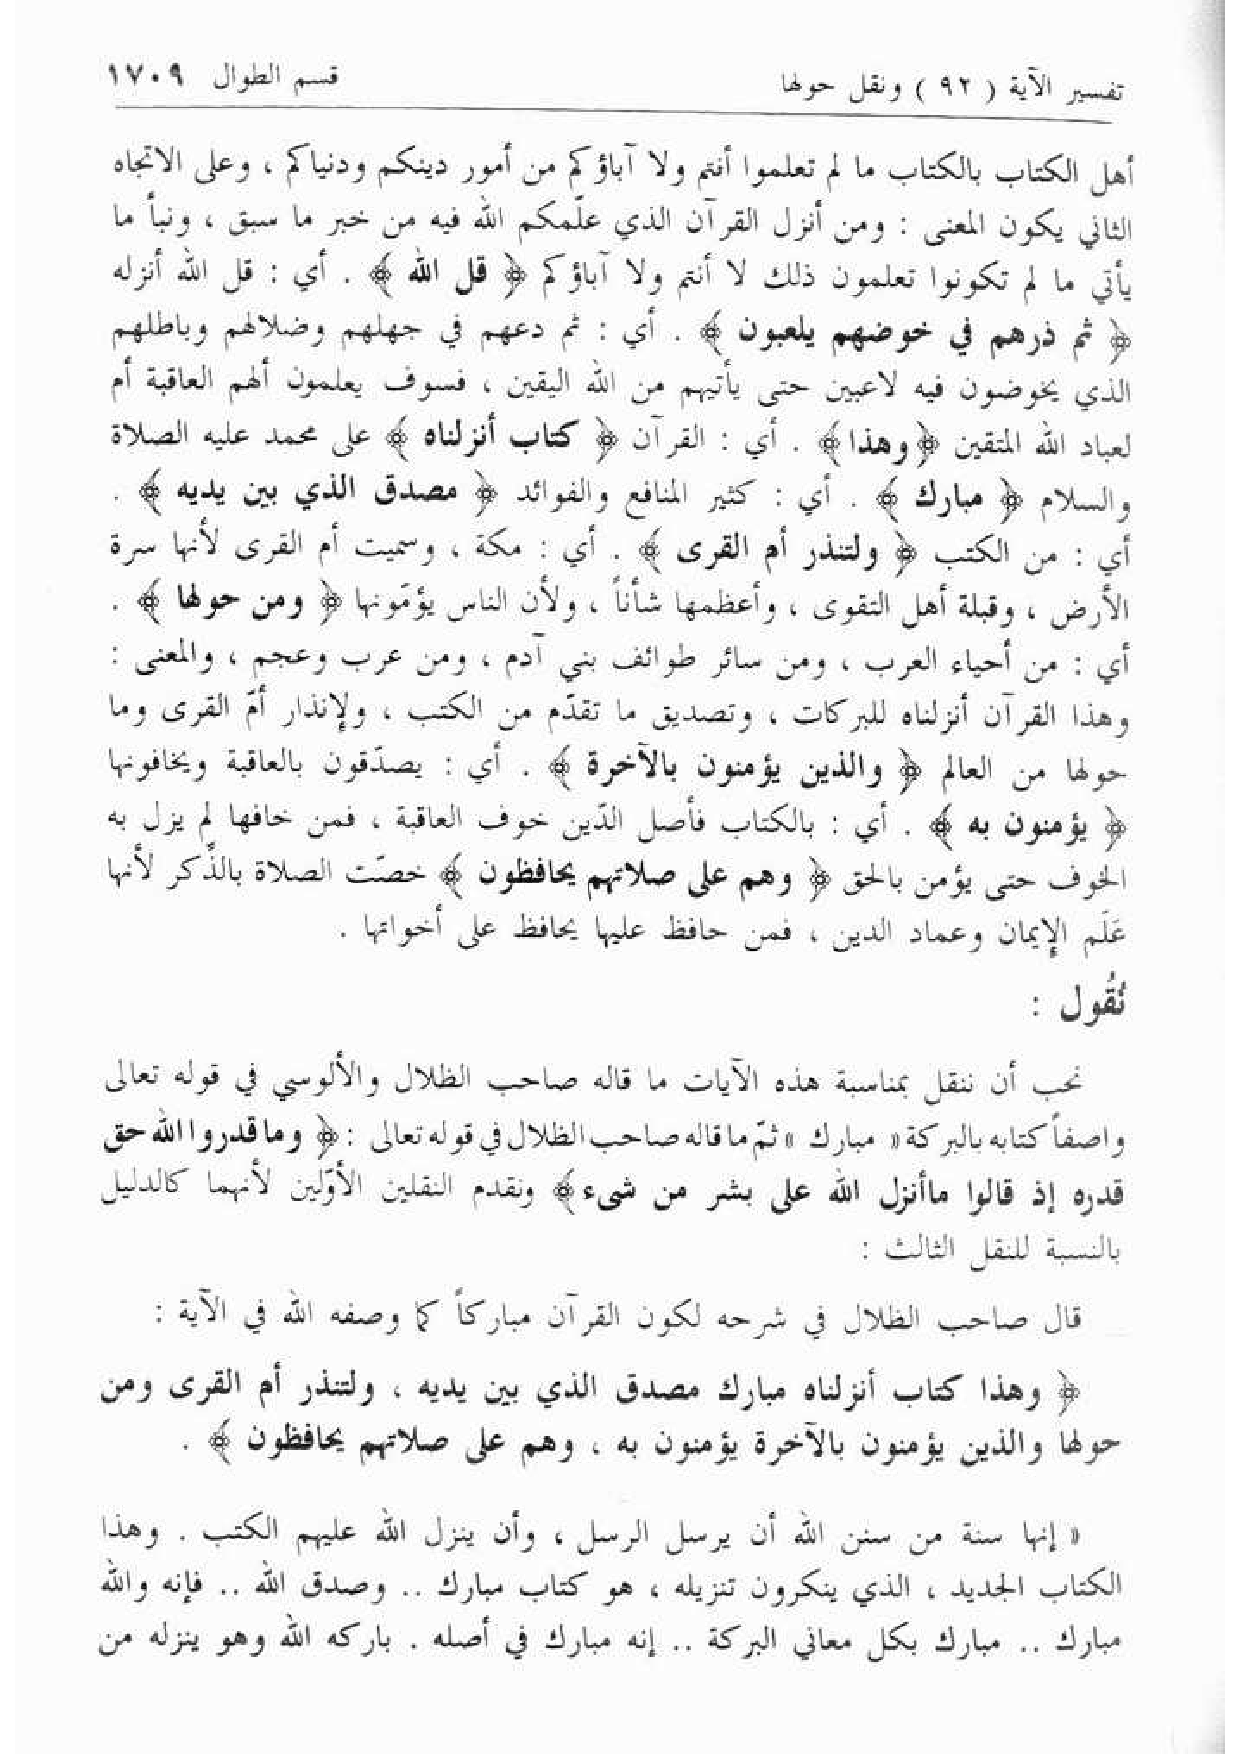 تفسير الآية ( ٩٢ ) ونقل حولها قسم الطوال ١٧٠٩
أهل الكتاب بالكتاب ما لم تعلموا أنتم ولا آباؤكم من أمور دينكم ودنياكم ، وعلى الاتجاه
الثاني يكون المعنى : ومن أنزل القرآن الذي علّمكم الله فيه من خبر ما سبق ، ونبأ ما
يأتي ما لم تكونوا تعلمون ذلك لا أنتم ولا آباؤكم ﴿ قل الله ﴾ . أي : قل الله أنزله
﴿ ثم ذرهم في خوضهم يلعبون ﴾ . أي : ثم دعهم في جهلهم وضلالهم وباطلهم
الذي يخوضون فيه لاعبين حتى يأتيهم من الله اليقين ، فسوف يعلمون ألهم العاقبة أم
لعباد الله المتقين ﴿وهذا﴾ . أي : القرآن ﴿ كتاب أنزلناه ﴾ على محمد عليه الصلاة
والسلام ﴿ مبارك ﴾ . أي : كثير المنافع والفوائد ﴿ مصدق الذي بين يديه ﴾ .
أي : من الكتب ﴿ ولتنذر أم القرى ﴾ . أي : مكة ، وسميت أم القرى لأنها سرة
الأرض ، وقبلة أهل التقوى ، وأعظمها شأناً ، ولأن الناس يؤمّونها ﴿ ومن حولها ﴾ .
أي : من أحياء العرب ، ومن سائر طوائف بني آدم ، ومن عرب وعجم ، والمعنى :
وهذا القرآن أنزلناه للبركات ، وتصديق ما تقدّم من الكتب ، ولإنذار أمّ القرى وما
حولها من العالم ﴿ والذين يؤمنون بالآخرة ﴾ . أي : يصدّقون بالعاقبة ويخافونها
﴿ يؤمنون به ﴾ . أي : بالكتاب فأصل الدّين خوف العاقبة ، فمن خافها لم يزل به
الخوف حتى يؤمن بالحق ﴿ وهم على صلاتهم يحافظون ﴾ خصّت الصلاة بالذّكر لأنها
عَلَم الإيمان وعماد الدين ، فمن حافظ عليها يحافظ على أخواتها .
نُقُول :
نحب أن ننقل بمناسبة هذه الآيات ما قاله صاحب الظلال والألوسي في قوله تعالى
واصفاً كتابه بالبركة « مبارك » ثمّ ما قاله صاحب الظلال في قوله تعالى : ﴿ وما قدروا الله حق
قدره إذ قالوا ماأنزل الله على بشر من شيء ﴾ ونقدم النقلين الأوّلين لأنهما كالدليل
بالنسبة للنقل الثالث :
قال صاحب الظلال في شرحه لكون القرآن مباركاً كما وصفه الله في الآية :
﴿ وهذا كتاب أنزلناه مبارك مصدق الذي بين يديه ، ولتنذر أم القرى ومن
حولها والذين يؤمنون بالآخرة يؤمنون به ، وهم على صلاتهم يحافظون ﴾ .
« إنها سنة من سنن الله أن يرسل الرسل ، وأن ينزل الله عليهم الكتب . وهذا
الكتاب الجديد ، الذي ينكرون تنزيله ، هو كتاب مبارك .. وصدق الله .. فإنه والله
مبارك .. مبارك بكل معاني البركة .. إنه مبارك في أصله . باركه الله وهو ينزله من